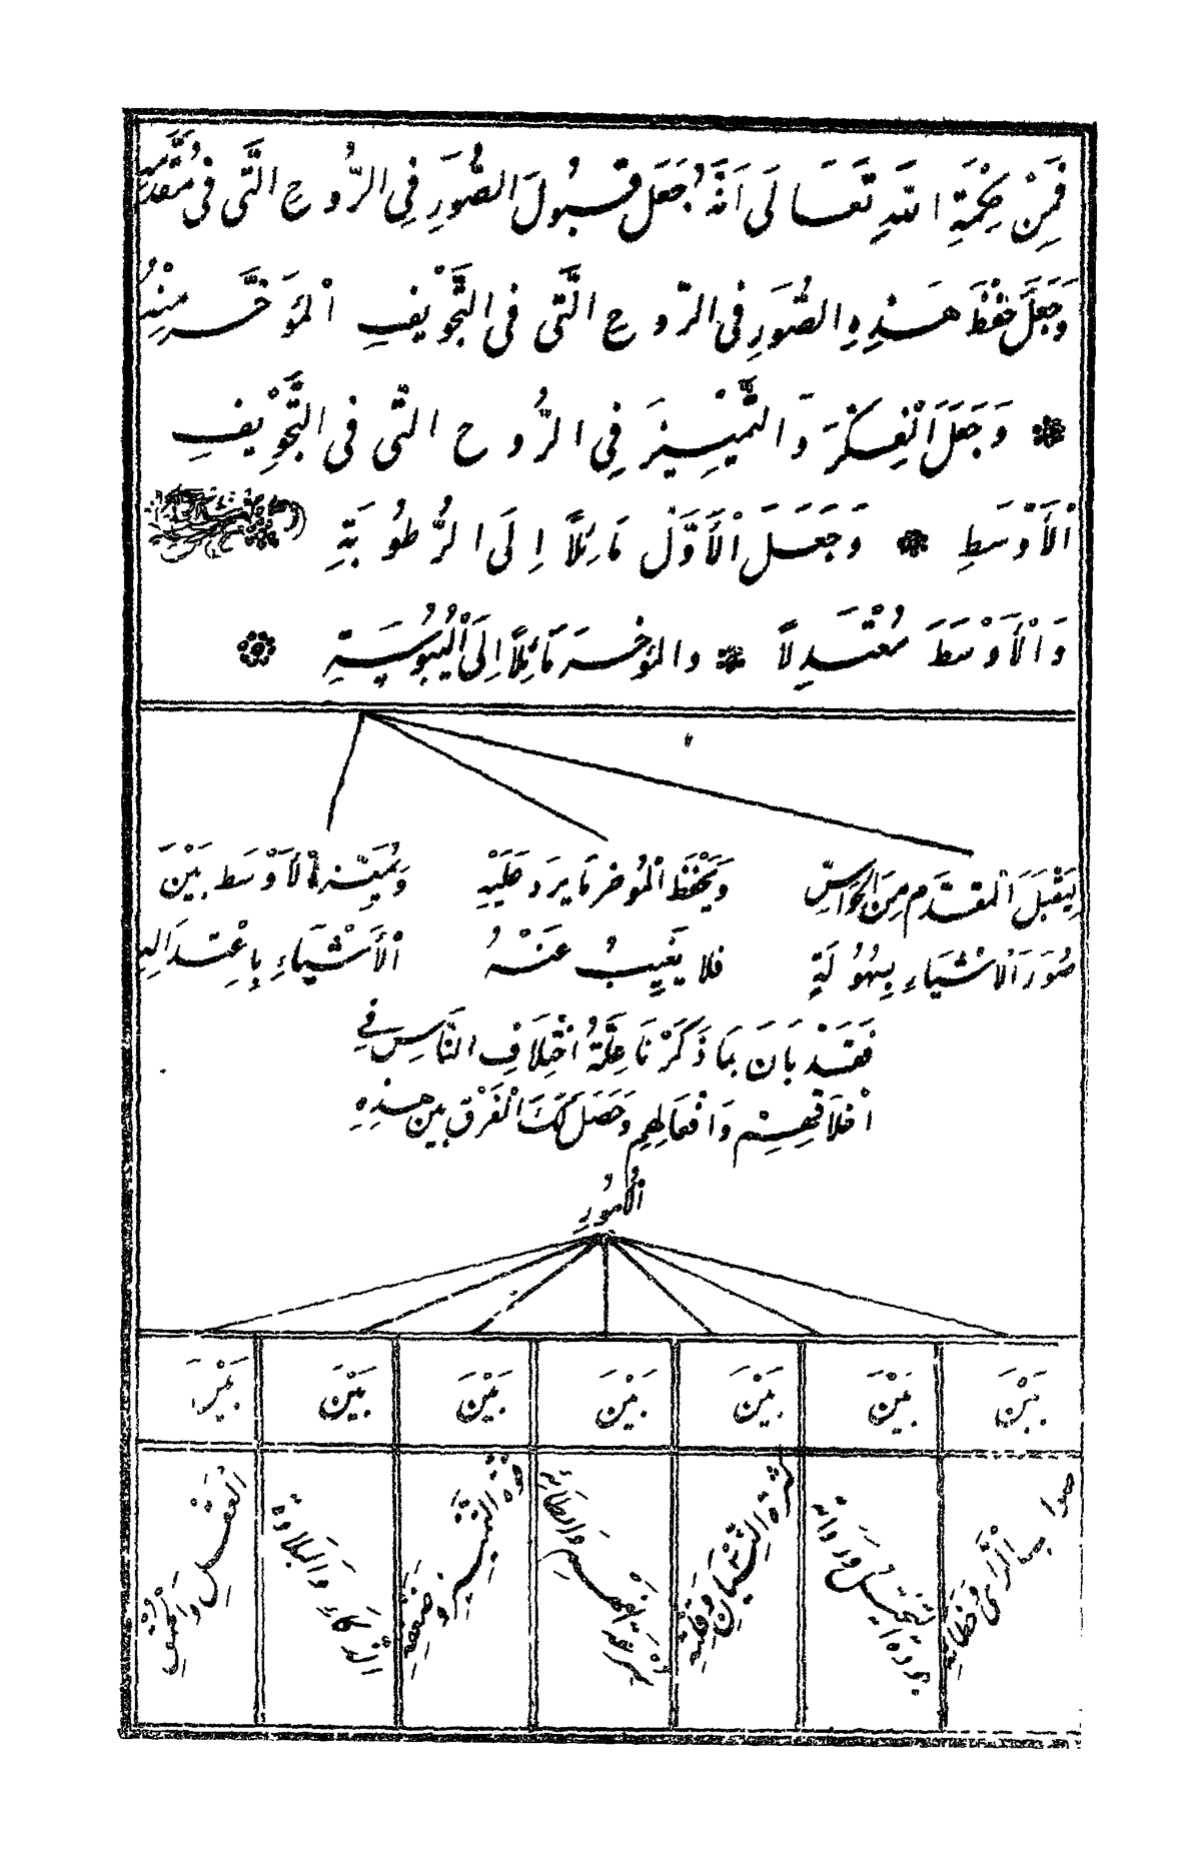 فَمِنْ حِكْمَةِ اللهِ تَعَالَى اَنَّهُ جَعَلَ قَبُولَ الصُّوَرِ فِى الرُّوحِ الَّتَى فى مُقَدَّمِ
وَجَعَلَ حِفْظَ هَذِهِ الصُّوَرِ فى الرّوحِ الَّتى فى التَّجْوِيفِ اْلمُؤَخَّرِ مِنْهُ
وَجَعَلَ الْفِكْرَ وَالتَّمْيِيزَ فِى الرُّوحِ التَّى فى التَّجْوِيفِ
اْلأَوْسَطِ وَجَعَلَ اْلأَوَّلَ مَائِلاً اِلَى الرُّطُوبَةِ
وَاْلأَوْسَطَ مُعْتَدِلاً والمؤخر مَائِلاً اِلَى اْليُبُوسَةِ
لِيَقْبَلَ المقدَّم مِنَ الحَوَاسِّ
وَيَحْفَظَ اْلمُؤخر مَا يرَدَ عَلَيْهِ
وَيُمَيِّزَ اْلأَوْسَط بَيْنَ
صُوَرَ اْلاَشْيَاءِ بِسُهُولَةٍ
فلا يَغِيبُ عَنْهُ
اْلأَشْيَاءِ بِاِعْتِدَالِهِ
فَقَدْ بَانَ بمَا ذَكَرْنَا عِلَّةُ اخْتِلَافِ النَّاسِ فِي
اَخْلَاقِهِمْ وَاَفْعَالِهِم وَحَصَلَ لَكَ الْفَرْق بين هذِهِ
اْلاُمُورِ
بَيْنَ
بَيْنَ
بَيْنَ
بَيْنَ
بَيْنَ
بَيْنَ
بَيْنَ
صواب الرَّأى وَخَطَائِه
جودة التخيّل وَرداءته
كثرة النِّسْيَانِ وَقِلَّتِه
قوة التمْيِيز وضعفه
الذكاءِ وَالبَلَادة
العَقْلِ وَالحُمْقِ